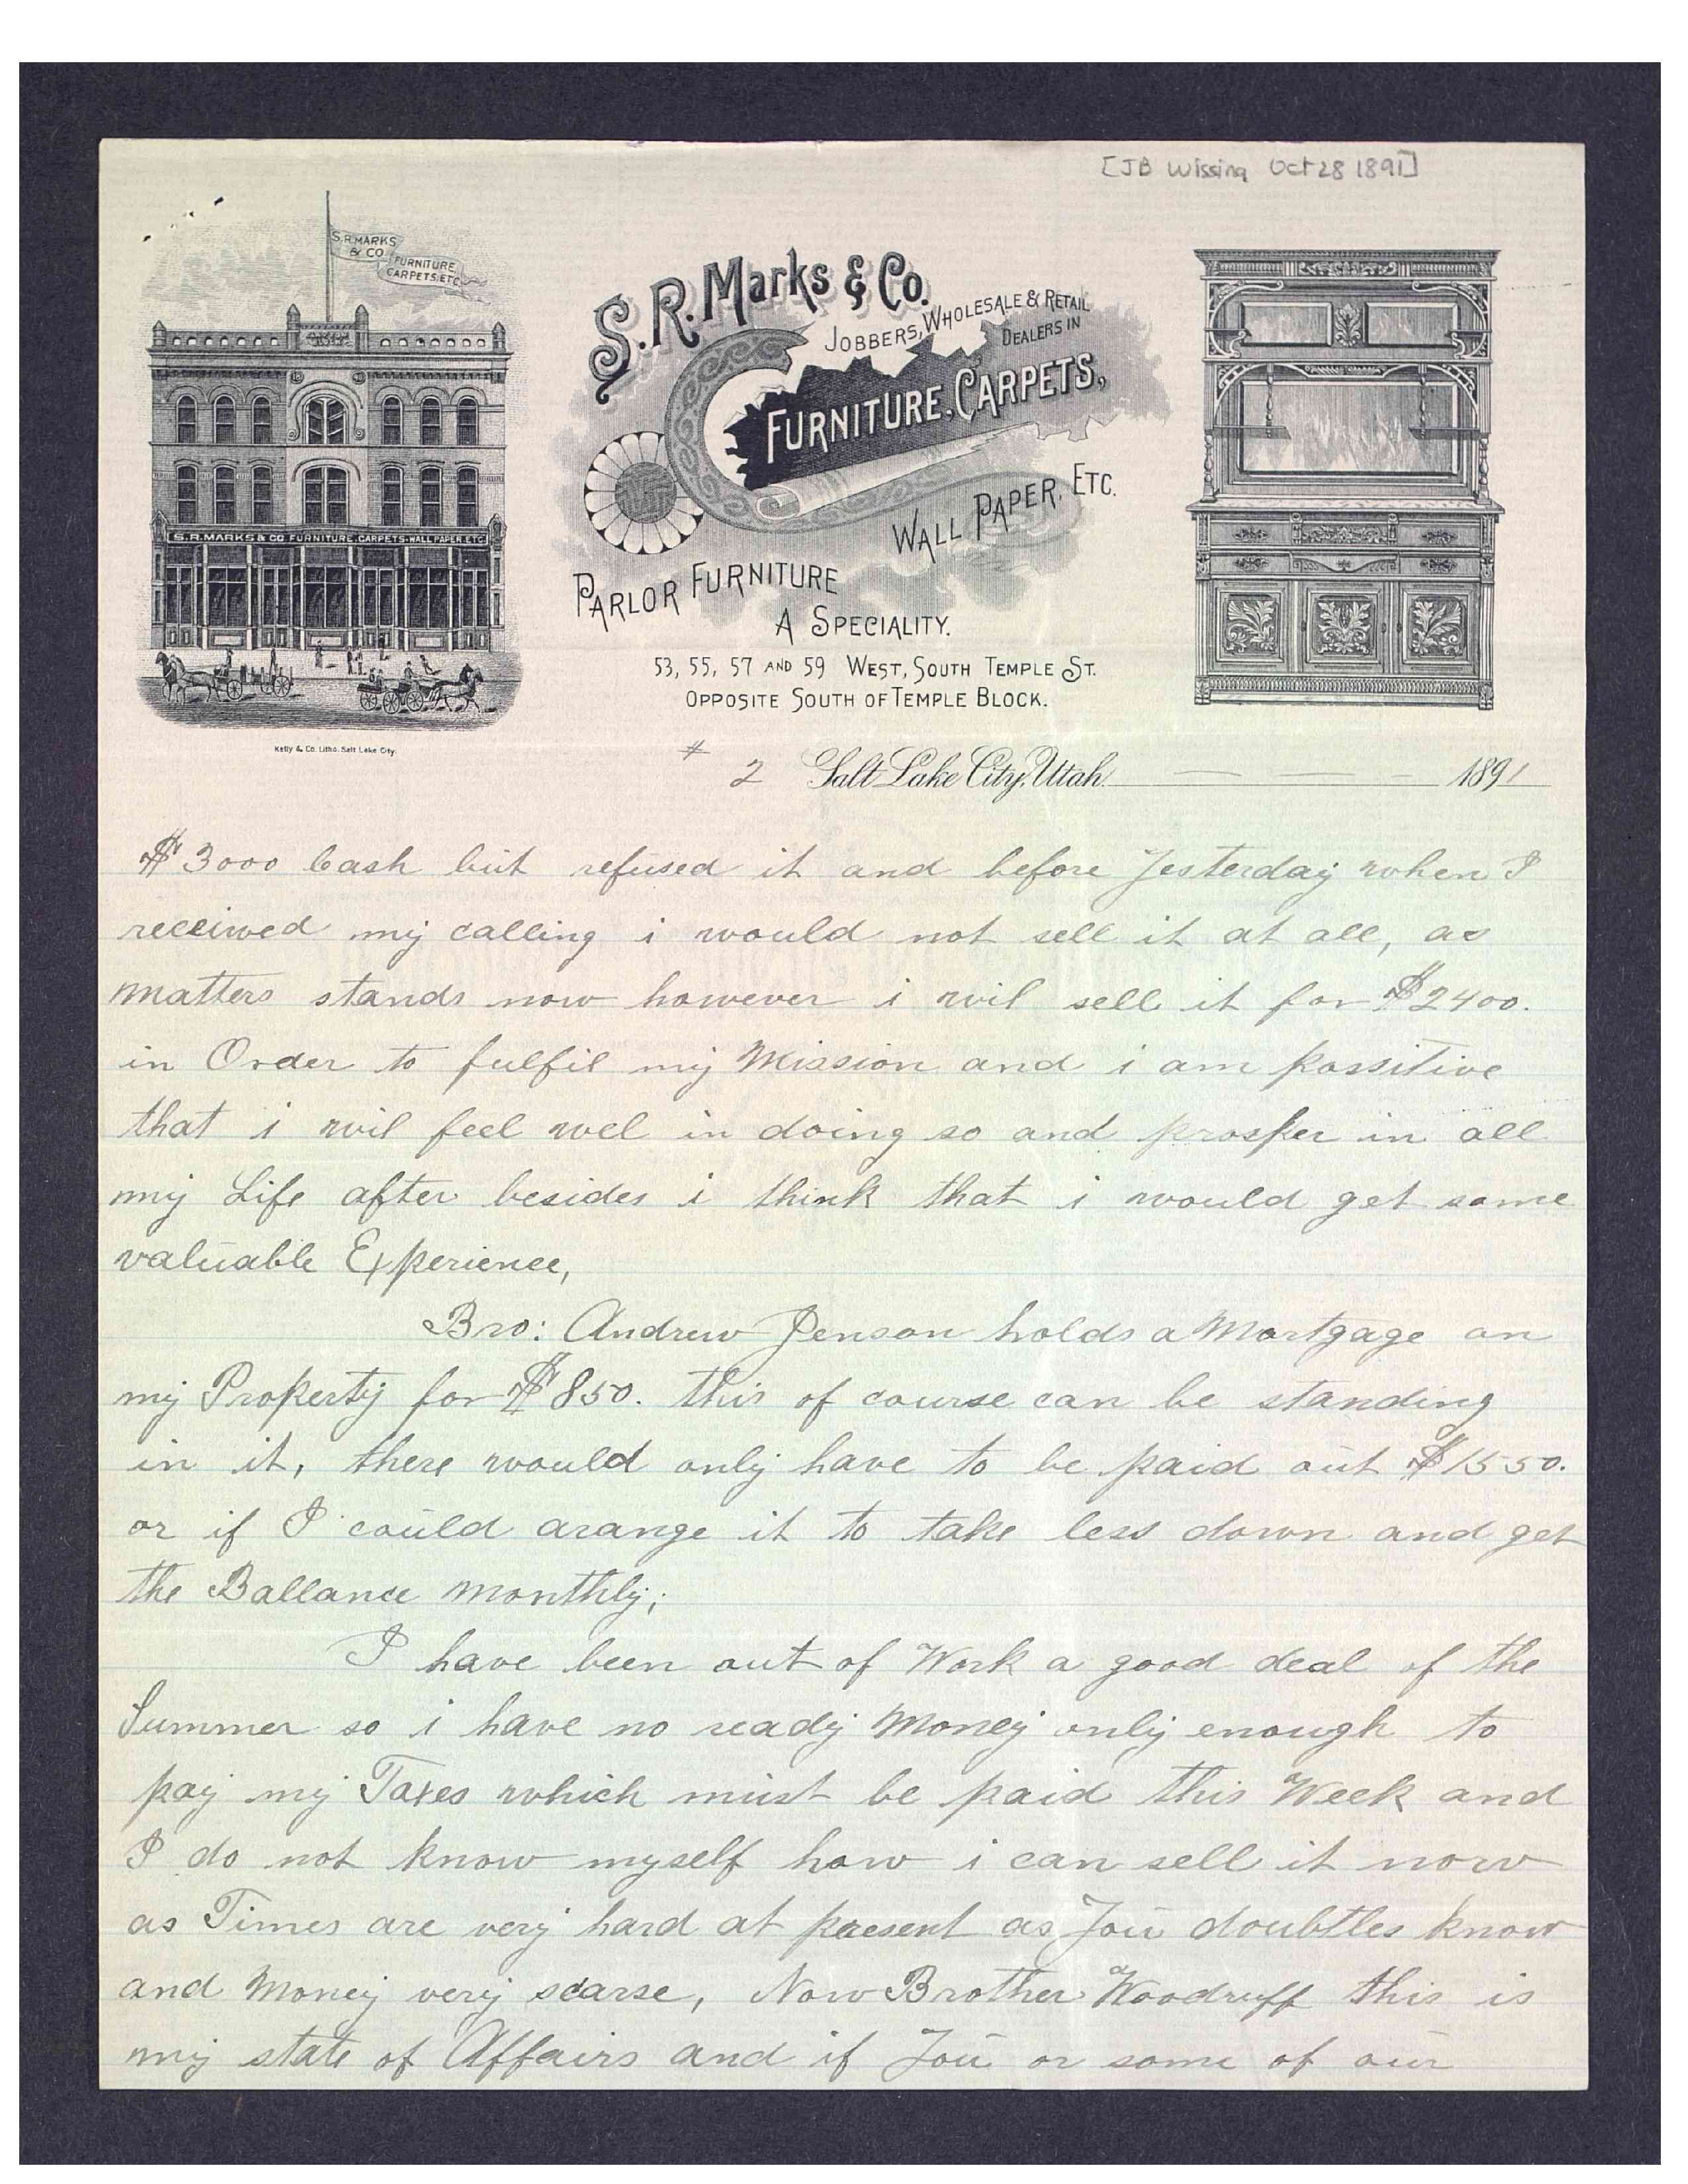 [JB Wissing Oct 28 1891]
S.R.MARKS
& CO
FURNITURE
CARPETS.ETC.
S.R.MARKS & CO FURNITURE.CARPETS-WALL PAPER.ETC.
Kelly & Co. Litho. Salt Lake City.
S.R. Marks & Co.
JOBBERS, WHOLESALE & RETAIL
DEALERS IN
FURNITURE. CARPETS,
WALL PAPER, ETC.
PARLOR FURNITURE
A SPECIALITY.
53, 55, 57 AND 59 WEST, SOUTH TEMPLE ST.
OPPOSITE SOUTH OF TEMPLE BLOCK.
# 2 Salt Lake City, Utah. — — — 1891
$3000 Cash but refused it and before Yesterday when I
received my calling i would not sell it at all, as
matters stands now however i wil sell it for $2400.
in Order to fulfil my Mission and i am possitive
that i wil feel wel in doing so and prosper in all
my Life after besides i think that i would get some
valuable Experience,
Bro: Andrew Jenson holds a Mortgage on
my Property for $850. this of course can be standing
in it, there would only have to be paid out $1550.
or if I could arange it to take less down and get
the Ballance monthly;
I have been out of Work a good deal of the
Summer so i have no ready Money only enough to
pay my Taxes which must be paid this Week and
I do not know myself how i can sell it now
as Times are very hard at present as You doubtles know
and Money very scarse, Now Brother Woodruff this is
my state of Affairs and if You or some of our